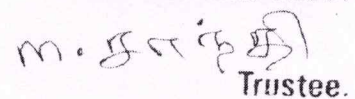 m. சாந்தி
Trustee.